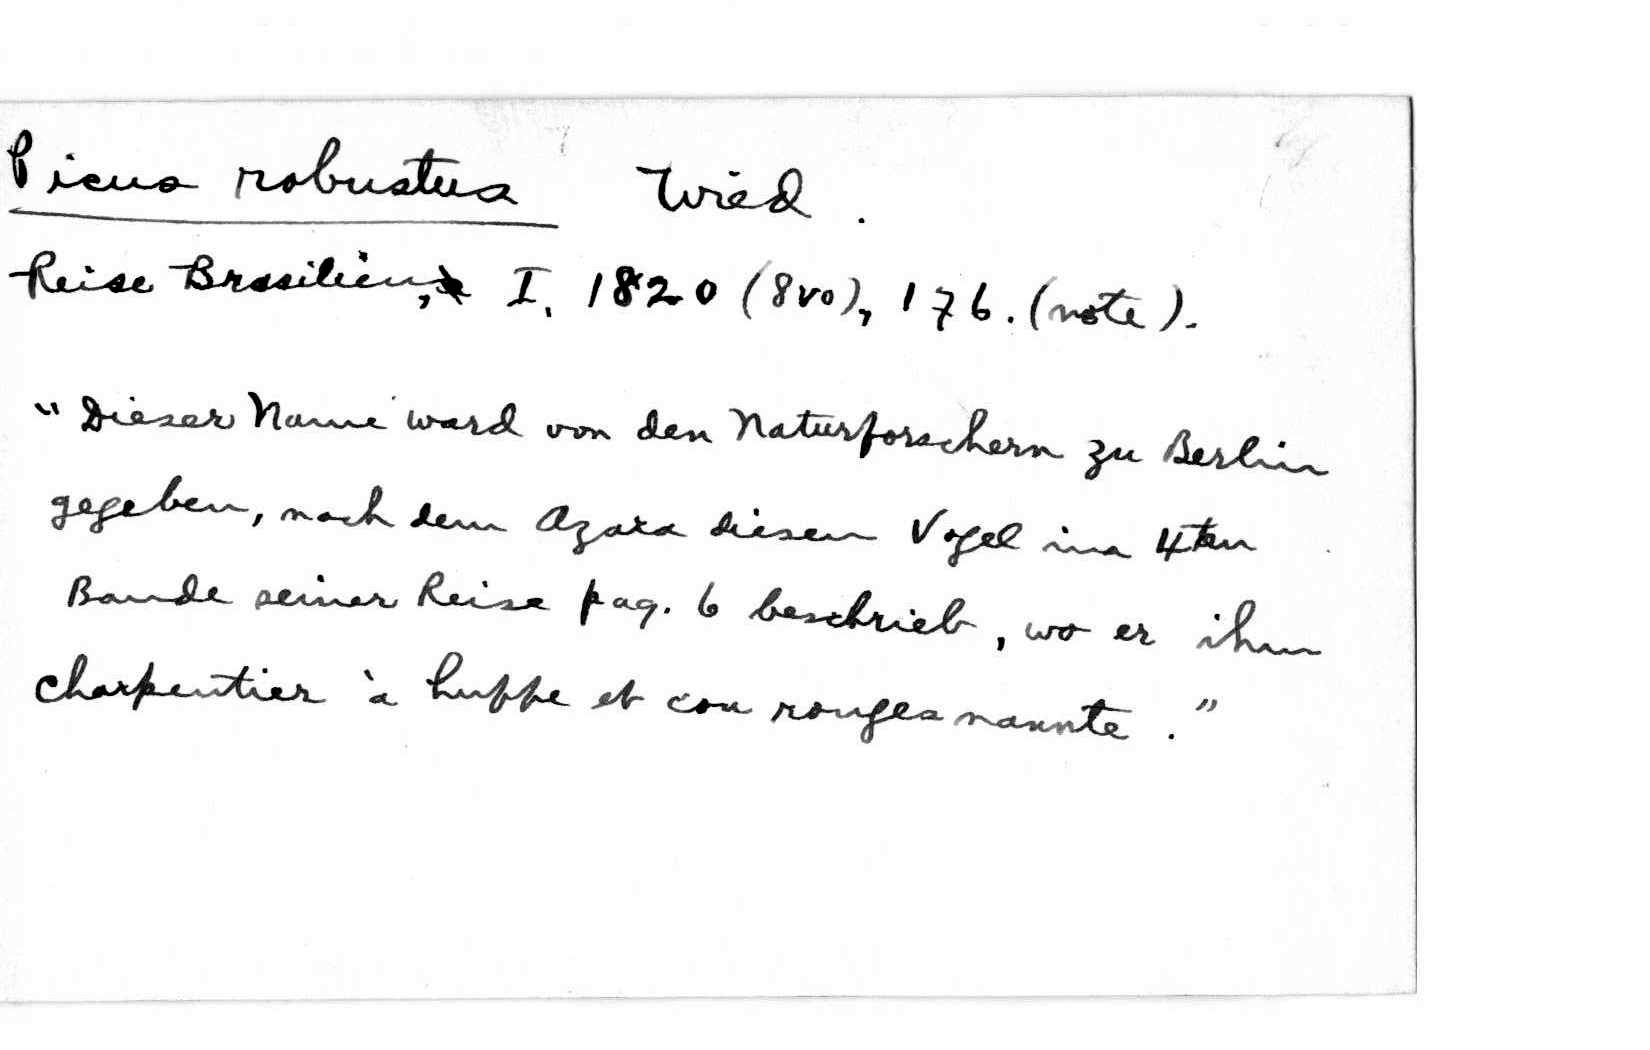 Picus robustus Wied.
Reise Brasilien, I, 1820 (8vo), 176. (note).
"Dieser Name ward von den Naturforschern zu Berlin
gegeben, nach dem Azara diesen Vogel im 4ten
Bande seiner Reise pag. 6 beschrieb, wo er ihn
charpentier à huppe et cou rouges nannte."